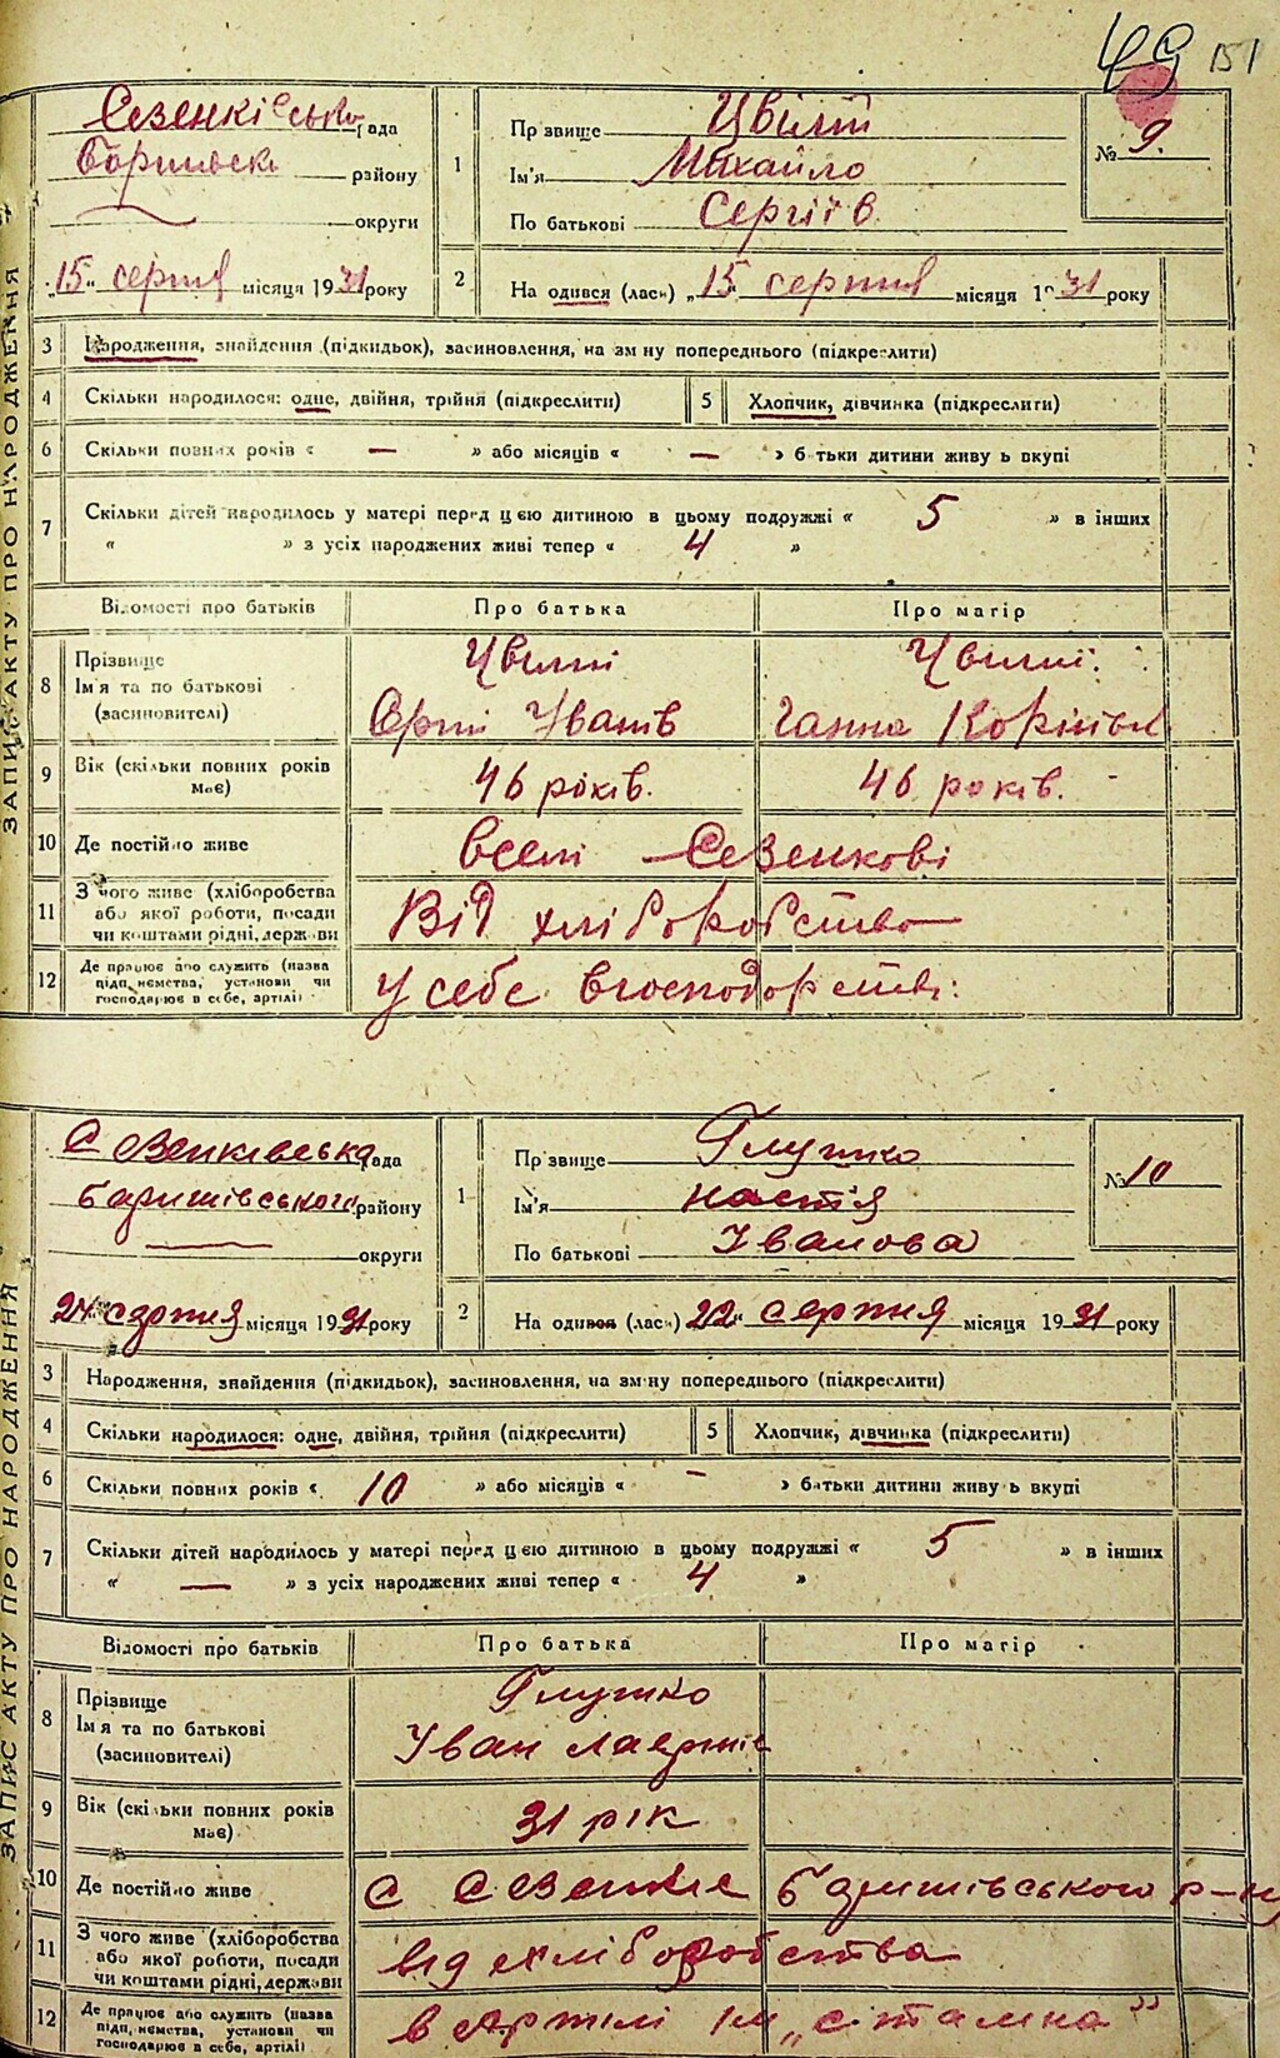 49 151
ЗАПИС АКТУ ПРО НАРОДЖЕННЯ
Сезенківська рада
Баришівськ району
округи
"15" серпня місяця 1931 року
1
Прізвище Цвілій
Ім'я Михайло
По батькові Сергіїв
№ 9.
2
На одився (лась) "15" серпня місяця 1931 року
3 Народження, знайдення (підкидьок), засиновлення, на зміну попереднього (підкреслити)
4 Скільки народилося: одне, двійня, трійня (підкреслити)
5 Хлопчик, дівчинка (підкреслити)
6 Скільки повних років « — » або місяців « — » батьки дитини живуть вкупі
7 Скільки дітей народилось у матері перед цією дитиною в цьому подружжі « 5 » в інших
« » з усіх народжених живі тепер « 4 »
Відомості про батьків Про батька Про матір
8 Прізвище
Ім'я та по батькові
(засиновителі)
Цвілій
Сергій Іванів
Цвілій
Ганна Корніївн
9 Вік (скільки повних років
має)
46 років.
46 років.
10 Де постійно живе
вселі Сезенкові
11 З чого живе (хліборобства
або якої роботи, посади
чи коштами рідні, держави
Від хліборобство
12 Де працює або служить (назва
підприємства, установи чи
господарює в себе, артілі)
У себе вгосподорстві
ЗАПИС АКТУ ПРО НАРОДЖЕННЯ
Сезенківська рада
Баришівського району
округи
24 серпня місяця 1931 року
1
Прізвище Глушко
Ім'я Настія
По батькові Іванова
№ 10
2
На одився (лась) 22" серпня місяця 1931 року
3 Народження, знайдення (підкидьок), засиновлення, на зміну попереднього (підкреслити)
4 Скільки народилося: одне, двійня, трійня (підкреслити)
5 Хлопчик, дівчинка (підкреслити)
6 Скільки повних років « 10 » або місяців « - » батьки дитини живуть вкупі
7 Скільки дітей народилось у матері перед цією дитиною в цьому подружжі « 5 » в інших
« — » з усіх народжених живі тепер « 4 »
Відомості про батьків Про батька Про матір
8 Прізвище
Ім'я та по батькові
(засиновителі)
Глушко
Іван
9 Вік (скільки повних років
має)
31 рік
10 Де постійно живе
с Сезенкове Баришівського р-ну
11 З чого живе (хліборобства
або якої роботи, посади
чи коштами рідні, держави
від хліборобства
12 Де працює або служить (назва
підприємства, установи чи
господарює в себе, артілі)
в артілі ім „Сталіна"